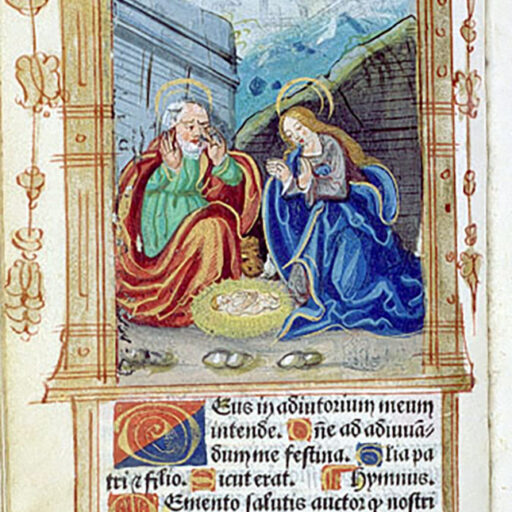 Deus in adiutorium meum
intende. Dñe ad adiuuā⸗
dum me festina. Glia pa
tri ⁊ filio. Sicut erat. Hymnus.
Memento salutis auctor ꝙ nostri